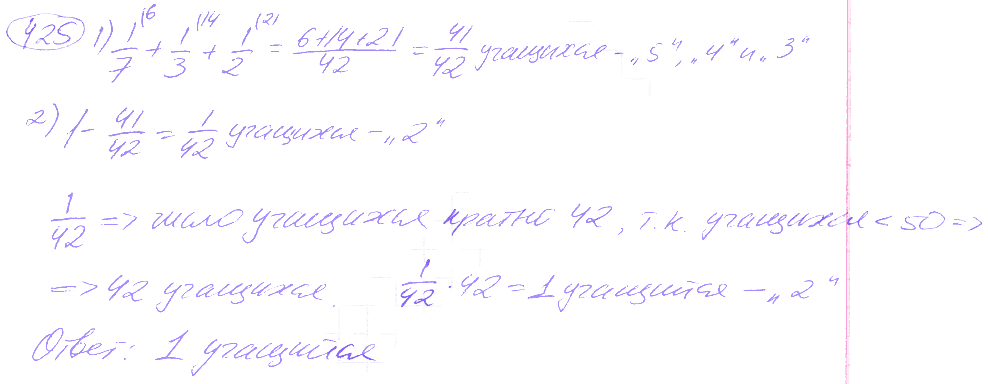 425 1) 1/7 (6 + 1/3 (14 + 1/2 (21 = 6+14+21/42 = 41/42 учащихся – „5“, „4“ и „3“
2) 1 – 41/42 = 1/42 учащихся – „2“
1/42 => число учащихся кратно 42, т.к. учащихся < 50 =>
=> 42 учащихся 1/42 · 42 = 1 учащийся – „2“
Ответ: 1 учащийся